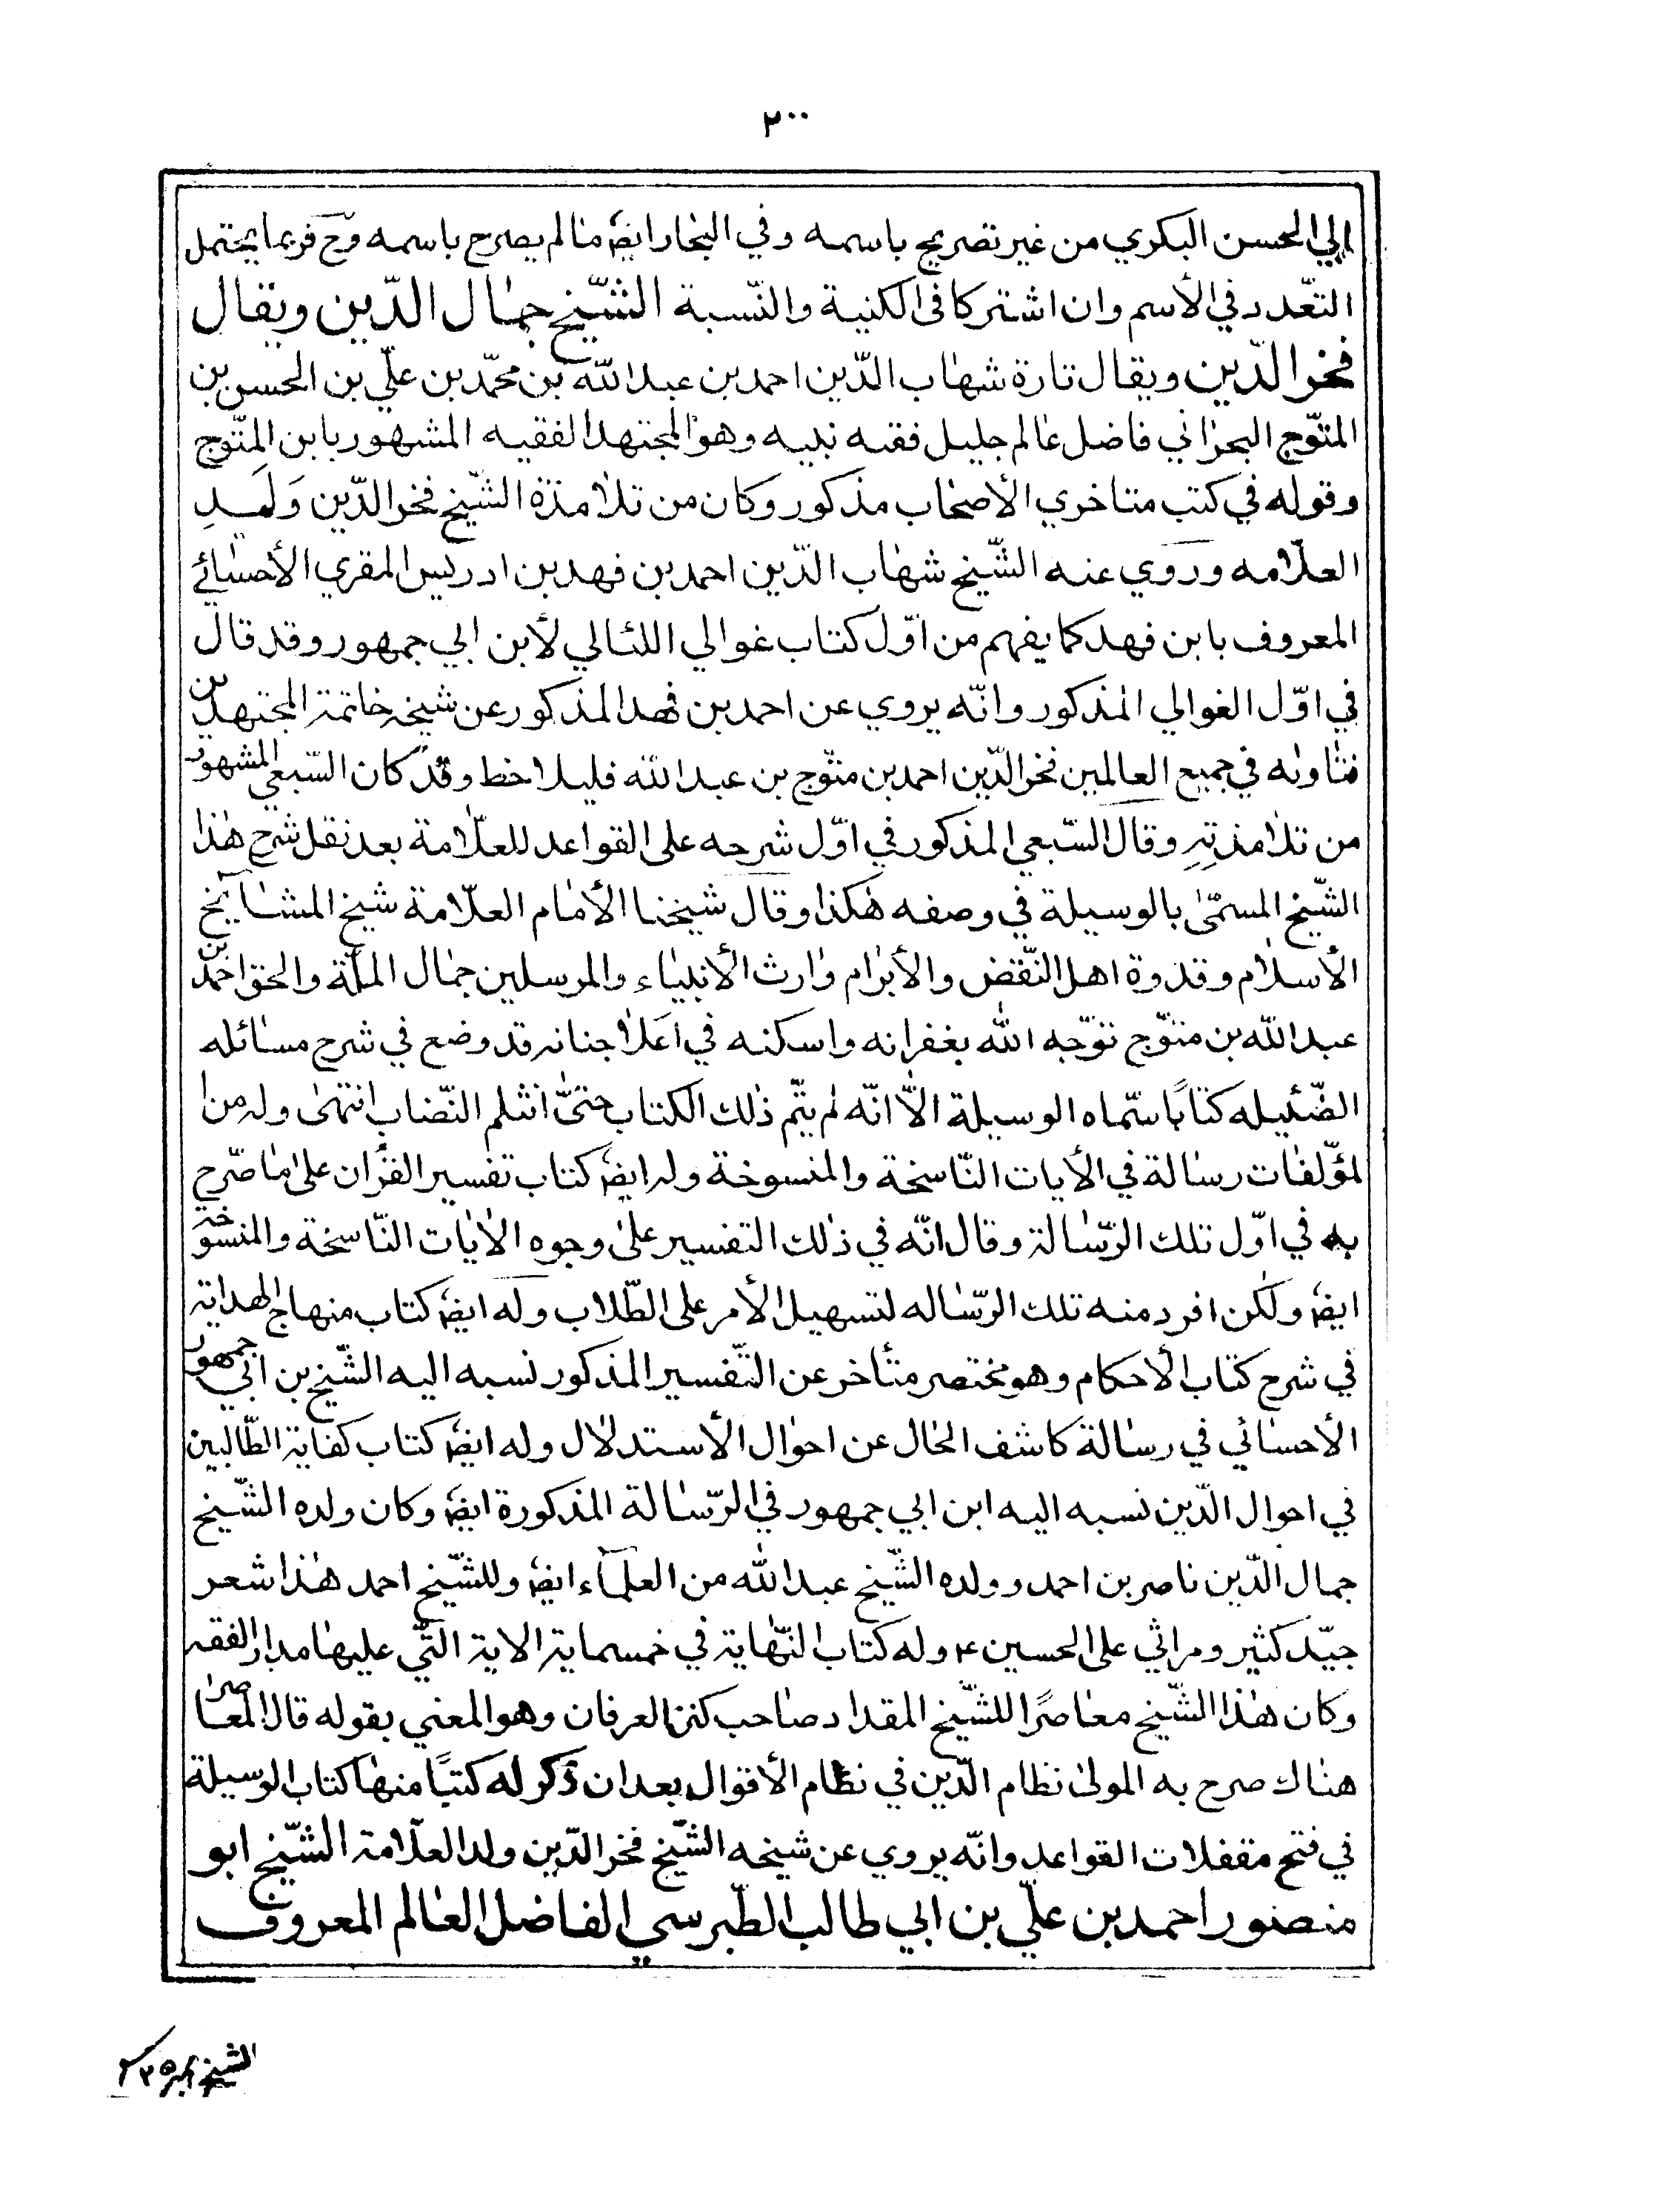 ٣٠٠
ابي الحسن البكري من غير تصريح باسمه وفي البحار ايضا ما لم يصرح باسمه وح فربما يحتمل
التعّدد في الأسم وان اشتركا في الكنية والنّسبة الشّيخ جمال الدّين ويقال
فخر الدّين ويقال تارة شهاب الدّين احمد بن عبد اللّه بن محمّد بن علّي بن الحسن بن
المتوّج البحراني فاضل عالم جليل فقيه نبيه وهو المجتهد الفقيه المشهور بابن المتّوج
وقوله في كتب متاخري الأصحاب مذكور وكان من تلامذة الشّيخ فخر الدّين ولد
العلّامه وروي عنه الشّيخ شهاب الدّين احمد بن فهد بن ادريس المقري الأحسائي
المعروف بابن فهد كما يفهم من اوّل كتاب غوالي اللئالي لأبن ابي جمهور وقد قال
في اوّل الغوالي المذكور وانّه يروي عن احمد بن فهد المذكور عن شيخه خاتمة المجتهدين
فتاواه في جميع العالمين فخر الدّين احمد بن متوّج بن عبد اللّه فليلاحظ وقد كان السّبعي المشهور
من تلامذته وقال السّبعي المذكور في اوّل شرحه على القواعد للعلّامة بعد نقل شرح هذا
الشّيخ المسمّى بالوسيلة في وصفه هكذا وقال شيخنا الأمام العلّامة شيخ المشايخ
الأسلام وقدوة اهل النّقض والأبرام وارث الأنبياء والمرسلين جمال الملّة والحق احمد بن
عبد اللّه بن متوّج توّجه اللّه بغفرانه واسكنه في اعلا جنانه قد وضع في شرح مسائله
الضّئيله كتابًا سمّاه الوسيلة الاّ انّه لم يتمّ ذلك الكتاب حتىّ انثلم النّصاب انتهى وله من
لمؤّلفات رسالة في الأيات النّاسخة والمنسوخة وله ايضا كتاب تفسير القرأن على ما صّرح
به في اوّل تلك الرّسالة وقال انّه في ذلك التفسير على وجوه الأيات النّاسخة والمنسوخة
ايضا ولكن افرد منه تلك الرّساله لتسهيل الأمر على الطّلاب وله ايضا كتاب منهاج الهداية
في شرح كتاب الأحكام وهو مختصر متأخر عن التّفسير المذكور نسبه اليه الشّيخ بن ابي جمهور
الأحسائي في رسالة كاشف الحال عن احوال الأستدلال وله ايضا كتاب كفاية الطّالبين
في احوال الدّين نسبه اليه ابن ابي جمهور في الرّسالة المذكورة ايضا وكان ولده الشّيخ
جمال الدّين ناصر بن احمد وولده الشّيخ عبد اللّه من العلمآء ايضا وللشّيخ احمد هذا شعر
جيّد كثير ومراثي على الحسين ع وله كتاب النّهاية في خمسماية الاية التّي عليها مدار الفقه
وكان هذا الشّيخ معاصرًا للشّيخ المقداد صاحب كنز العرفان وهو المعني بقوله قال المعاصر
هناك صرح به المولى نظام الدّين في نظام الأقوال بعد ان ذكر له كتبًا منها كتاب الوسيلة
في فتح مقفلات القواعد وانّه يروي عن شيخه الشّيخ فخر الدّين ولد العلّامة الشّيخ ابو
منصور احمد بن علّي بن ابي طالب الطّبرسي الفاضل العالم المعروف